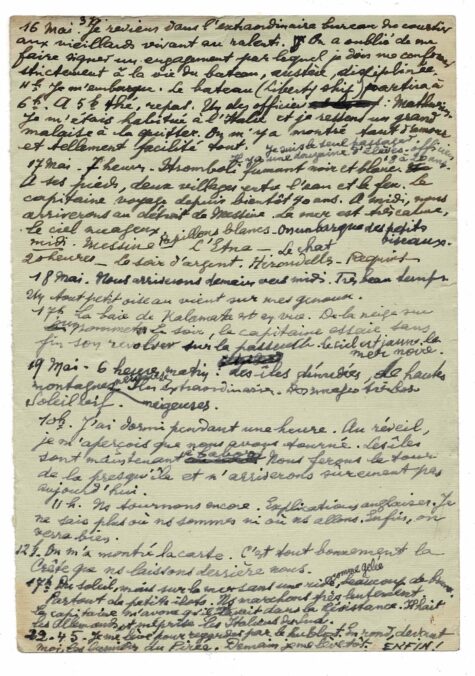 16 Mai 37 Je reviens dans l'extraordinaire bureau du courtier
aux vieillards vivant au ralenti. On a oublié de me
faire signer un engagement par lequel je dois me conformer
strictement à la vie du bateau, austère, disciplinée.
4h. Je m'embarque. Le bateau (liberty ship) partira à
6h. A 5h, repas. Un des officiers :
Je m'étais habitué à l'Italie et je ressens un grand
malaise à la quitter. On m'y a montré tant d'amour
et tellement facilité tout. Je suis le seul passager
Il y a une douzaine d'élèves-officiers
19 à 20 ans
17 Mai - 7 heures - Stromboli fumant noir et blanc.
A ses pieds, deux villages entre l'eau et le feu. Le
capitaine voyage depuis bientôt 40 ans. A midi, nous
arriverons au détroit de Messine. La mer est délicature
le ciel nuageux. Papillons blancs. On embarque des petits
oiseaux.
midi. Messine L'Etna - Le chat
20 heures - le soir d'argent. Hirondelles - Requins
18 Mai. Nous arriverons demain vers midi. Très beau temps
Un tout petit oiseau vient sur mes genoux.
17h La baie de Kalamata est en vue. De la neige sur
sommets. Le soir, le capitaine essaie sans
fin son revolver sur la passerelle. Le ciel est jaune, la
mer noire.
19 Mai - 6 heures matin - des îles dénudées, de hautes
montagnes extraordinaires. Des nuages très bas
Soleil vif. neigeuses.
10h. J'ai dormi pendant une heure. Au réveil,
je m'aperçois que nous avons tourné. Les îles
sont maintenant à babord. Nous ferons le tour
de la presqu'île et n'arriverons sûrement pas
aujourd'hui.
11h. Nous tournons encore. Explications anglaises. Je
ne sais plus où nous sommes ni où nous allons. Enfin, on
verra bien.
12h. On m'a montré la carte. C'est tout bonnement la
Crète que nous laissons derrière nous.
17h Du soleil, mais sur la mer sans une ride, comme gelée beaucoup de brume.
Partout de petits îlots. Nous marchons très lentement
Le capitaine dans la Résistance. Il hait
les Allemands et méprise les Italiens
22.45. Je me lève pour regarder par le hublot. En rond, devant
moi, les lumières du Pirée. Demain je me lève tôt. ENFIN!